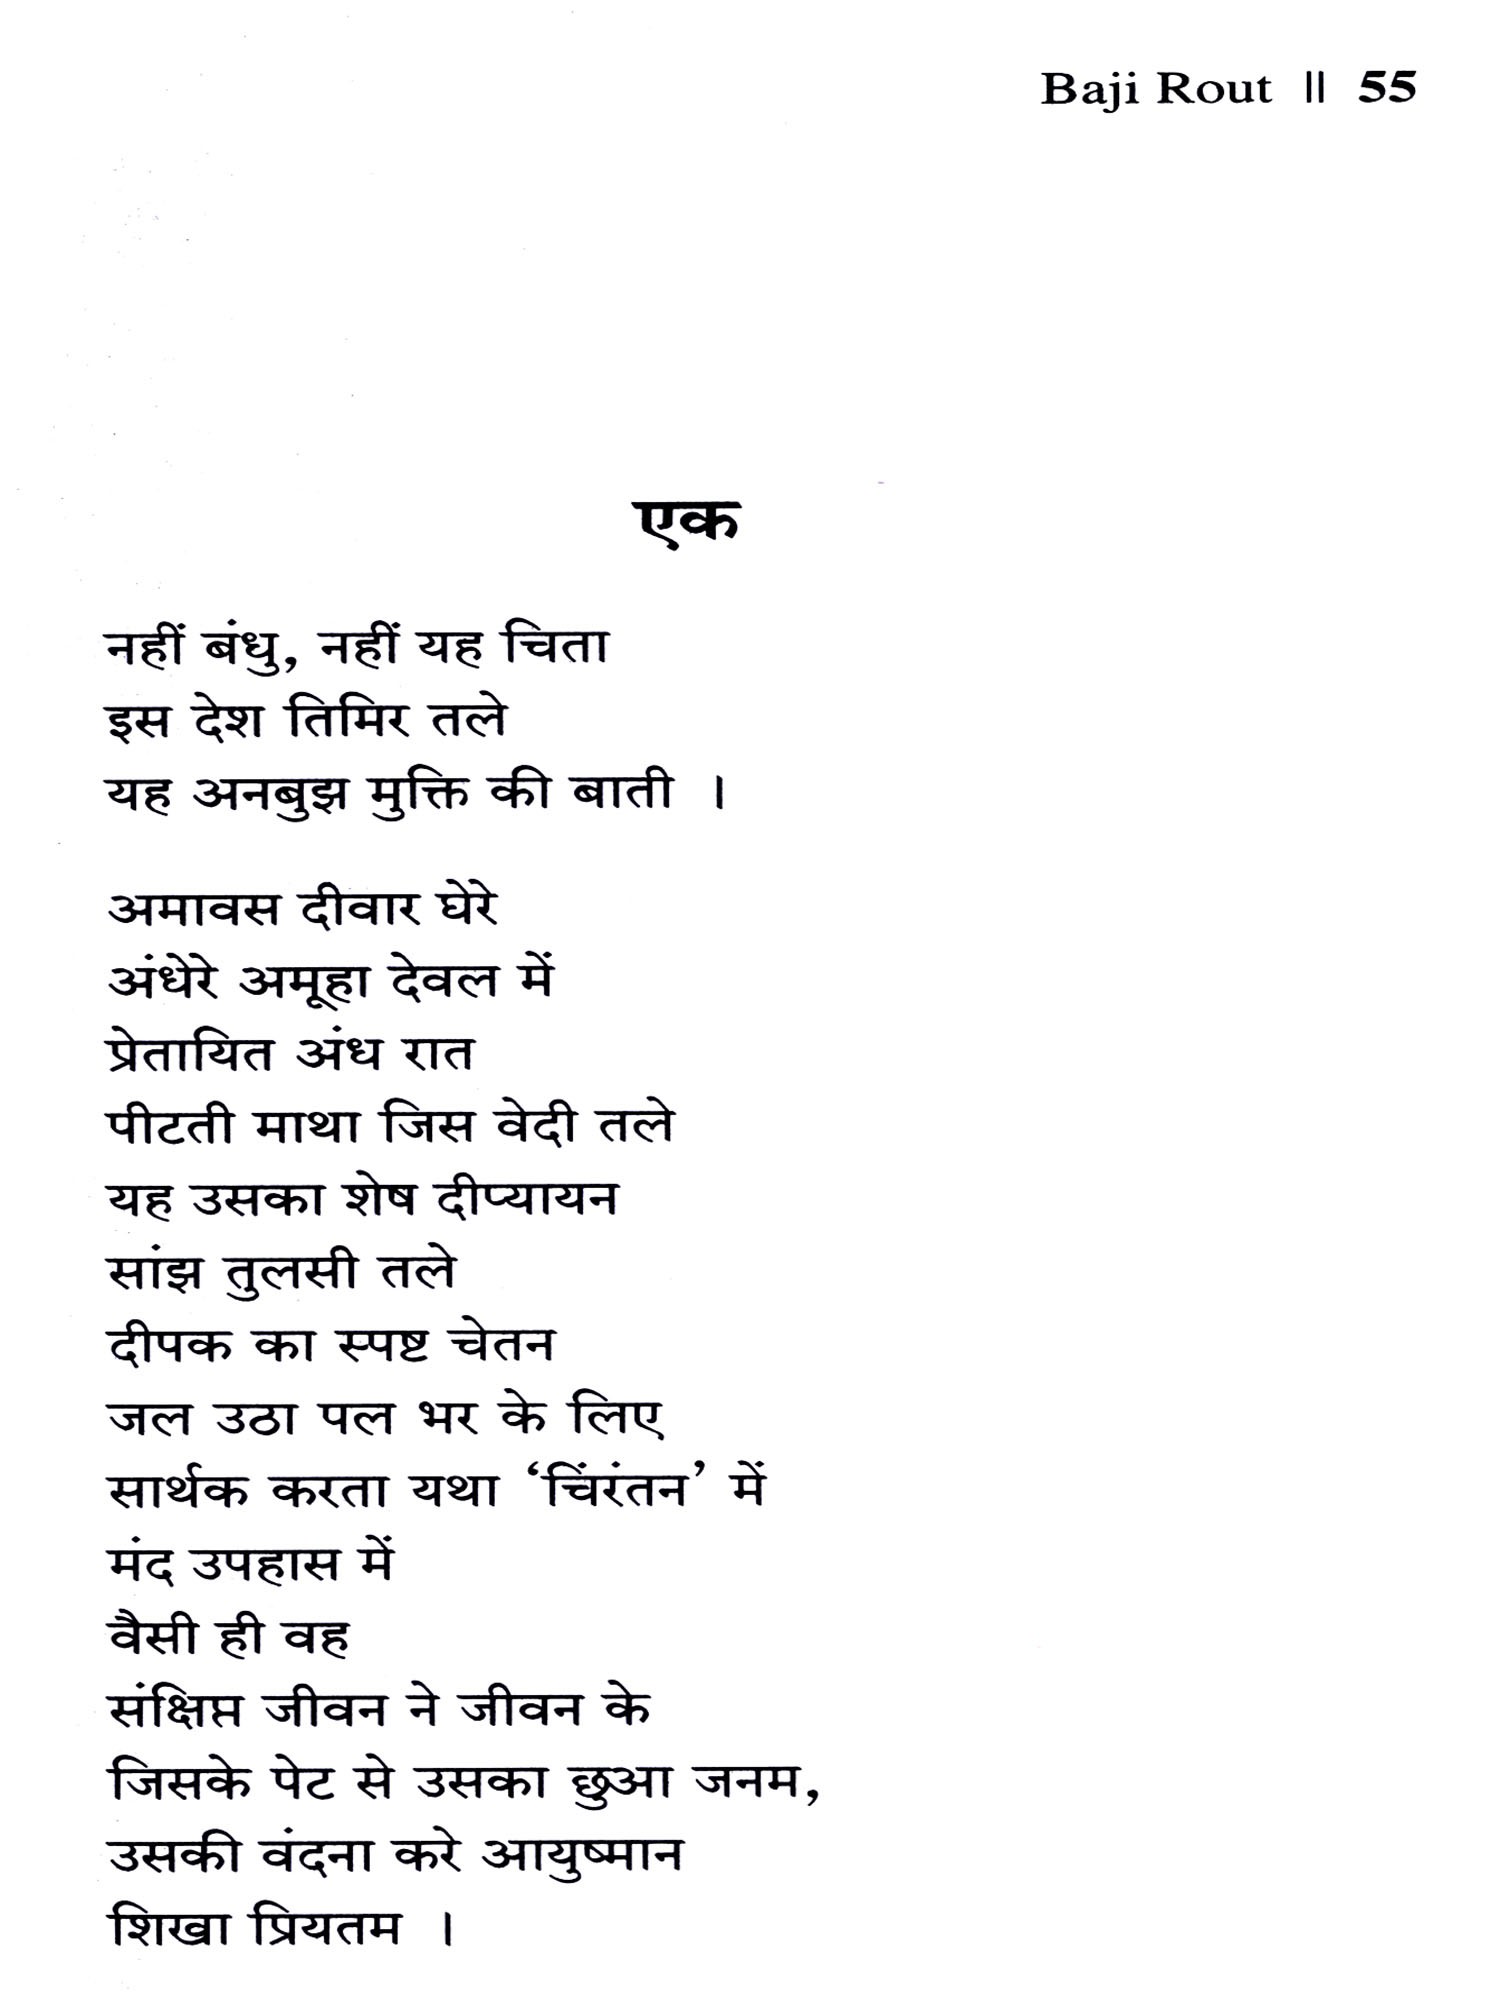 Baji Rout || 55
एक
नहीं बंधु, नहीं यह चिता
इस देश तिमिर तले
यह अनबुझ मुक्ति की बाती ।
अमावस दीवार घेरे
अंधेरे अमूहा देवल में
प्रेतायित अंध रात
पीटती माथा जिस वेदी तले
यह उसका शेष दीप्यायन
सांझ तुलसी तले
दीपक का स्पष्ट चेतन
जल उठा पल भर के लिए
सार्थक करता यथा ‘चिंरंतन’ में
मंद उपहास में
वैसी ही वह
संक्षिप्त जीवन ने जीवन के
जिसके पेट से उसका छुआ जनम,
उसकी वंदना करे आयुष्मान
शिखा प्रियतम ।